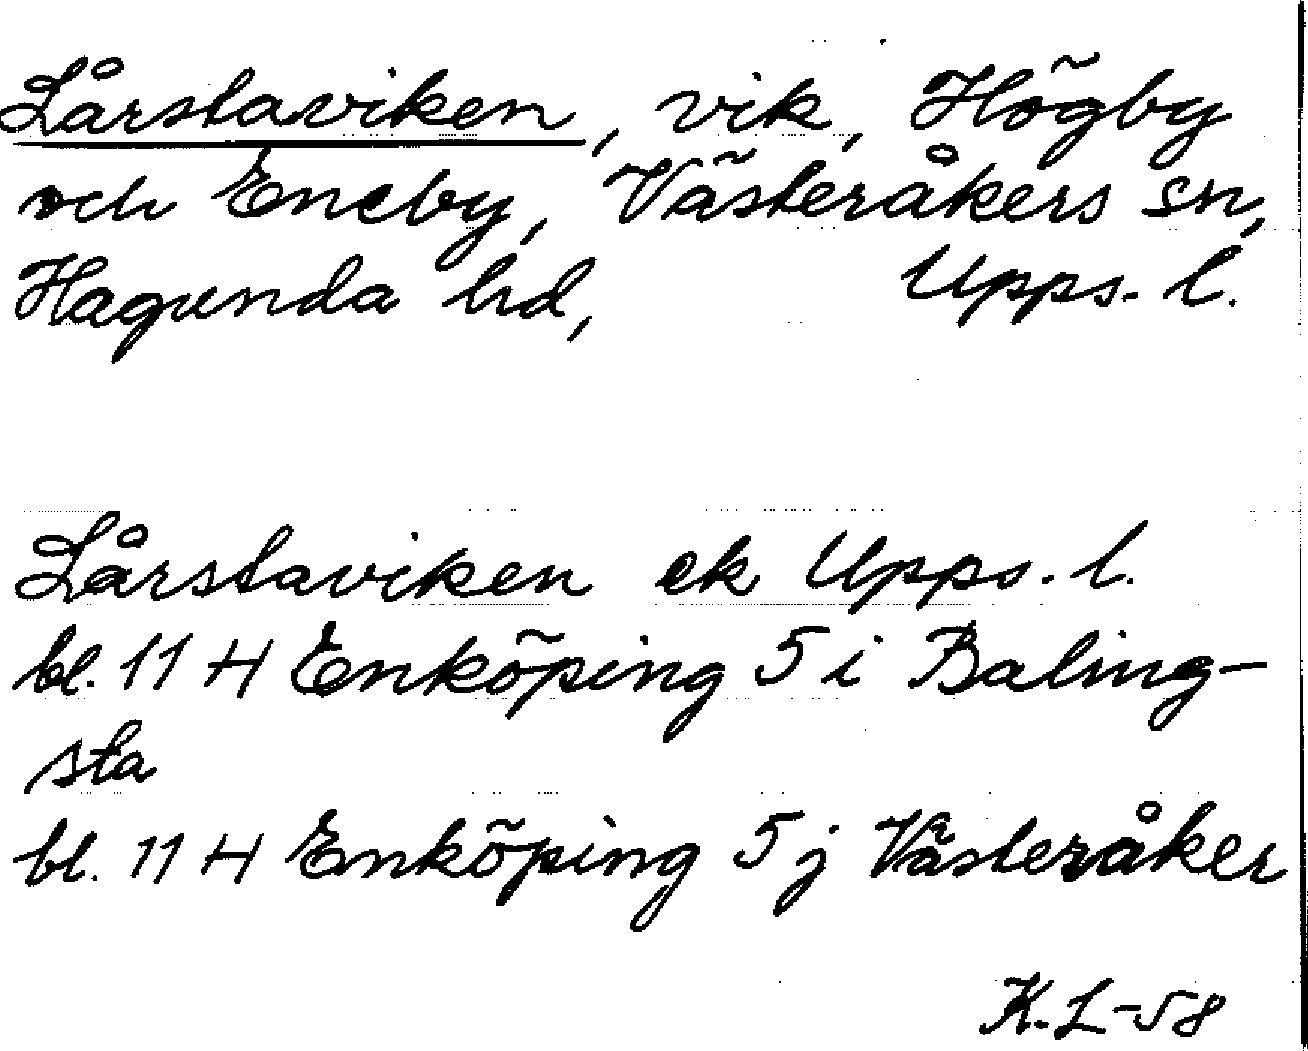 Lårstaviken, vik, Högby
och Eneby, Västeråkers sn,
Hagunda hd, Upps. l.
Lårstaviken ek Upps. l.
bl. 11 H Enköping 5 i Baling-
sta
bl. 11 H Enköping 5 j Västeråker
K.L-58